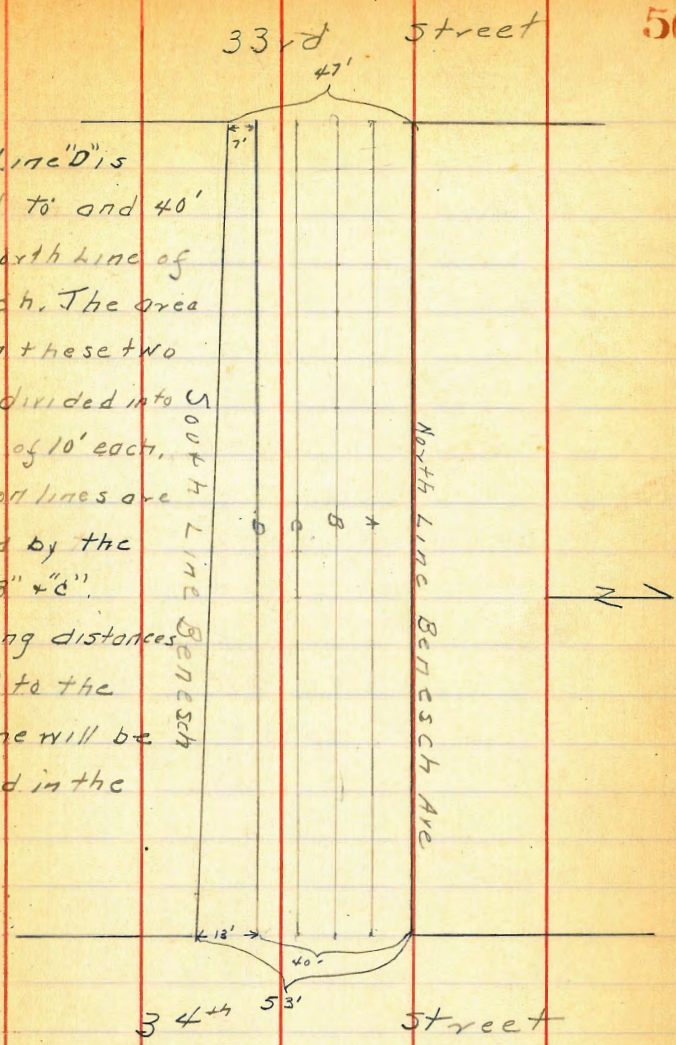 33rd Street
50
47'
7'
Line "D" is
to and 40'
North Line of
The area
these two
divided into
of 10' each.
lines are
by the
"B" & "C".
distances
to the
will be
in the
South Line Benesch
D C B A
North Line Benesch Ave
N
13'
40'
53'
34th Street